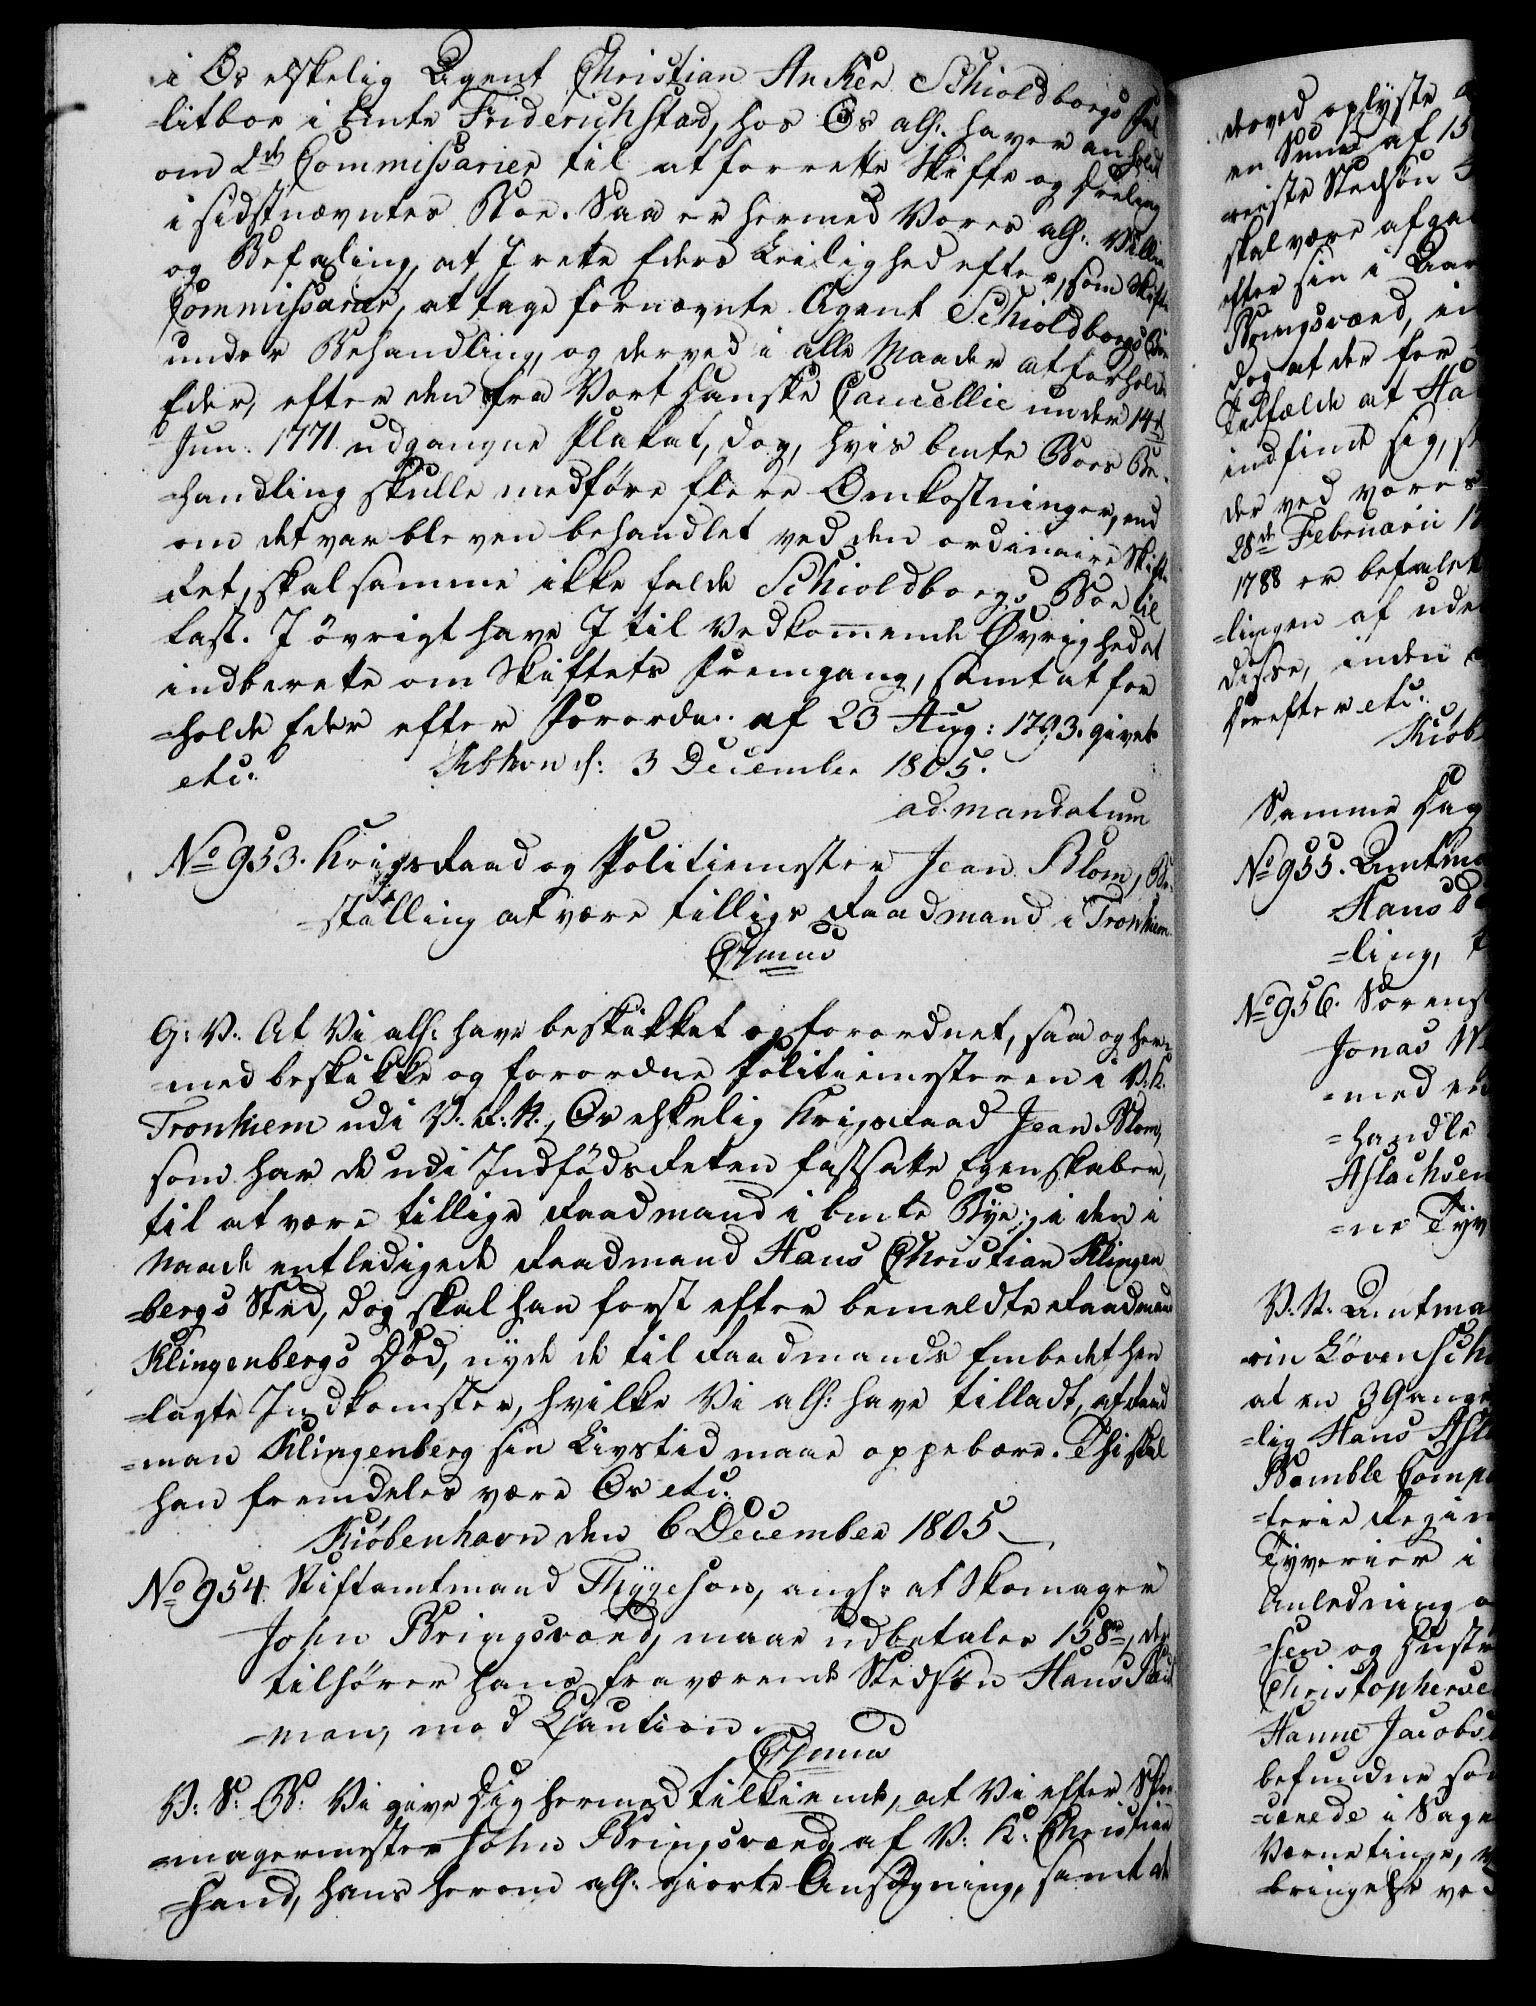 i Os elskelig Agent Christian Anker Schioldborgs Fal
=litboe i bmte Friderichstad, hos Os alh: haver anholdt
om 2de Commissarier til at forrette Skifte og Deeling
i sidstnævntes Boe. Saa er hermed Vores alh: Villie
og Befaling, at I rette Eders Leilighed efter, som Skifte
Commissarier, at tage fornævnte Agent Schioldborgs Boe
under Behandling, og derved i alle Maader at forholde
Eder, efter den fra Vort danske Cancellie under 14de
Jun: 1771 udgangne Plakat, dog, hvis bmte Boes Be=
=handling skulle medføre flere Omkostninger, end
om det var bleven behandlet ved den ordinaire Skifte
=Ret, skal samme ikke falde Schioldborgs Boe til
last. I øvrigt have I til Vedkommende Øvrighed at
indberette om Skiftets Fremgang, samt at for
=holde Eder efter Forordn: af 23 Aug: 1793. givet
etc. Kbhvn d: 3 December 1805.
ad mandatum
No 953. Krigsraad og Politiemester Jean Blom, Be=
=stalling at være tillige Raadmand i Tronhiem
G: V. At Vi alh: have beskikket og forordnet, saa og her=
=med beskikke og forordne Politiemesteren i V. K.
Tronhiem udi V. R. N., Os elskelig Krigsraad Jean Blom,
som har de udi Indfødsretten fastsatte Egenskaber,
til at være tillige Raadmand i bmte Bye, i den i
Naade entledigede Raadmand Hans Christian Klingen
=bergs Sted, dog skal han først efter bemeldte Raadmand
Klingenbergs Død, nyde de til Raadmands Embedet hen
=lagte Indkomster, hvilke Vi alh: have tilladt, at Raad
=man Klingenberg sin Livstid maae oppebære. Thi skal
han fremdeles være Os etc.
Kiøbenhavn den 6 December 1805.
No 954. Stiftamtmand Thygeson, angh: at Skomager
John Bringsværd, maae udbetales 158 rd, der
tilhører hans fraværende Stedsøn Hans
=man, mod Caution.
V: S: B: Vi give Dig hermed tilkiende, at Vi efter Skoe
=magermester John Bringsværd af V: K: Christian
=sand, hans herom alh: giorte Ansøgning, samt de
derved oplyste
en Summa af 15
reiste Stedsøn
skal være afga
efter sin i
Bringsværd, in
dog at der for
Tilfælde at Ha
indfinde sig,
der ved vores
28de Februarii 17
1788 er befalet
=lingen af ude
disse, inden
derefter etc.
Kiøb
Samme Dag
No 955. Amtma
Hans d
=ling,
No 956. Sorens
Jonas
=med en
=handle
Aslachsen
=ne Tyv
V: K: Amtma
=rin Løvensch
at en 3 Gange
=lig Hans Asl
Bamble Comp
=terie Regim
Tyverier i
Anledning
=sen og Hustr
Christopherse
Hanne Jacobs
befundne
=cerede i Sage
Værnetinge,
=bringelse ved